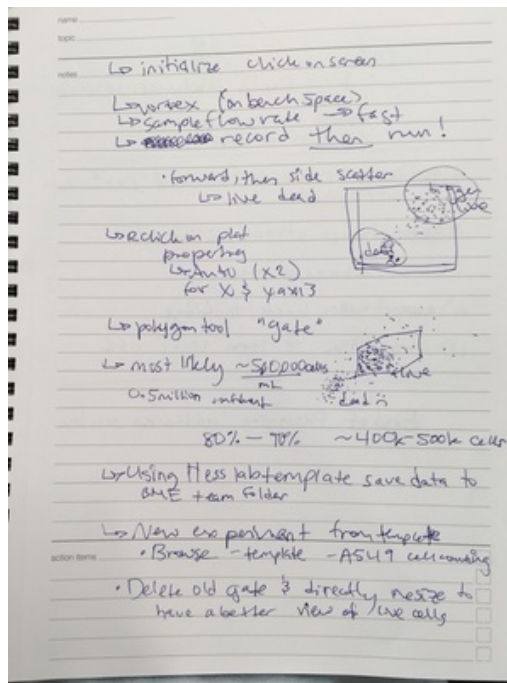 name
topic
notes
↳ initialize click on screen
↳ vortex (on bench space)
↳ sample flow rate → fast
↳ record then run!
• forward, then side scatter
↳ live dead
live
dead
↳ R click on plot
properties
↳ Auto (x2)
for x & y axis
↳ polygon tool "gate"
↳ most likely ~500,000 cells
mL
0.5 million
live
dead :(
80% - 90% ~400k-500k cells
↳ Using Hess lab template save data to
BME team folder
↳ New experiment from template
action items
• Browse - template - A549 cell counting
• Delete old gate & directly resize to
have a better view of live cells